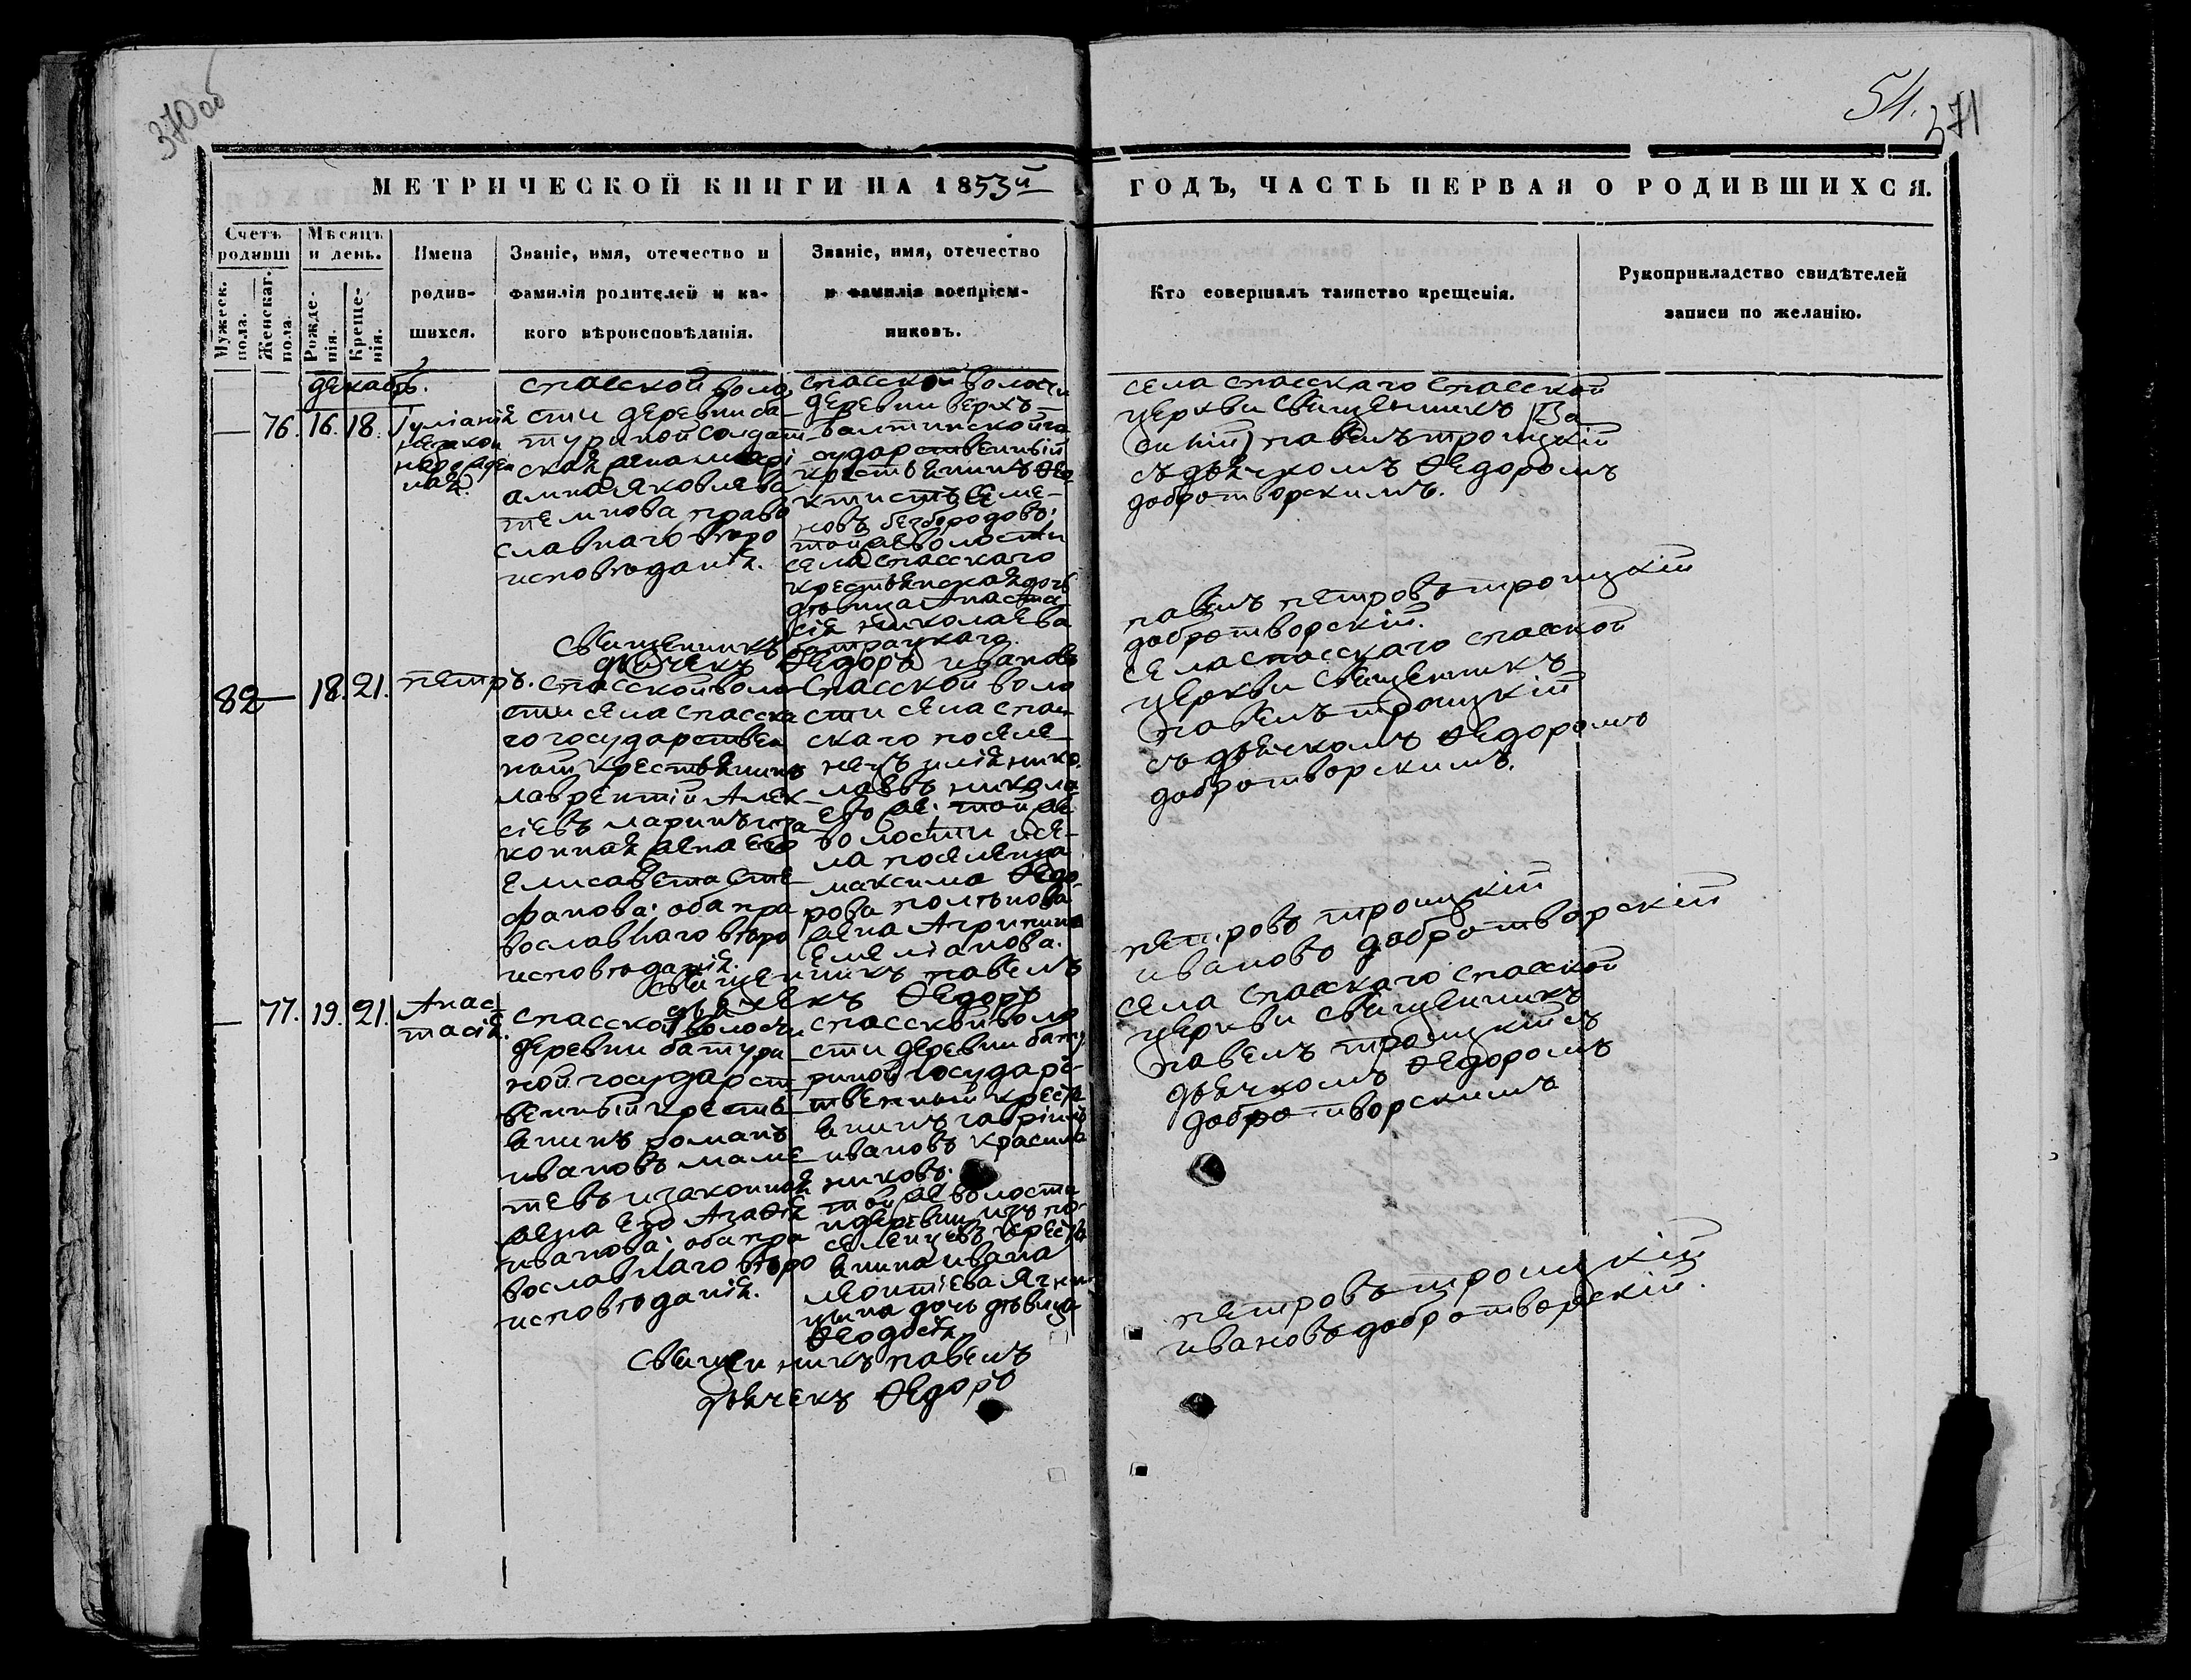 370 об
54.
371
МЕТРИЧЕСКОЙ КНИГИ НА 1853й
ГОДЪ, ЧАСТЬ ПЕРВАЯ О РОДИВШИХСЯ.
Счетъ
родивш
Мужеск.
пола.
Женскаг.
пола.
Мѣсяцъ
и день.
Рожде-
нія.
Креще-
нія.
Имена
родив-
шихся.
Званіе, имя, отечество и
фамилія родителей и ка-
кого вѣроисповѣданія.
Званіе, имя, отечество
и фамилія воспріем-
никовъ.
Кто совершалъ таинство крещенія.
Рукоприкладство свидѣтелей
записи по желанію.
декабр.
— 76. 16. 18.
Іуліанія
незакон
норожден
ная.
спасской воло
сти деревни Ба-
туриной солдат
ская жена Марі
амна Яковлева
темнова право
славнаго вѣро
исповѣданія.
спасской волости
деревни верхъ-
балтинской го
сударственный
крестьянинъ Ѳео
ктистъ Семе-
новъ безбородовъ;
той же волости
села спасскаго
крестьянская дочь
дѣвица Анаста-
сія Николаева
батрацкаго.
села спасскаго спасской
церкви священникъ Ва
силій павелъ троицкій
съ дьячкомъ Ѳедоромъ
добротворскимъ.
священникъ
павелъ петровъ троицкій
дьячекъ Ѳедоръ ивановъ
добротворскій.
82 — 18. 21.
петръ.
спасской воло
сти села спасска
го государствен
ной крестьянинъ
лаврентій Алек-
сіевъ ларинъ и за-
конная жена его
Елисавета Сте-
фанова; оба пра
вославнаго вѣро
исповѣданія.
спасской воло
сти села спас
скаго поселе-
нецъ илія нико
лаевъ никола
евъ же; той же
волости и се-
ла поселенца
максима Ѳедо
рова полѣнова
жена Агрипина
Емеліанова.
села спасскаго спасской
церкви священникъ
павелъ троицкій
съ дьячкомъ Ѳедоромъ
добротворскимъ.
священникъ павелъ
петровъ троицкій
дьячекъ Ѳедоръ
ивановъ добротворскій
— 77. 19. 21.
Анас
тасія.
спасской волости
деревни батури-
ной государст
венный кресть
янинъ романъ
ивановъ маме-
тевъ и законная
жена его Агаѳія
иванова; оба пра
вославнаго вѣро
исповѣданія.
спасской воло
сти деревни бату
риной государс-
твенный кресть
янинъ гавріилъ
ивановъ красиль
никовъ;
той же волости
и деревни изъ по-
селенцевъ кресть
янина ивана
леонтіева
дочь дѣвица
Ѳеодосія
села спасскаго спасской
церкви священникъ
павелъ троицкій съ
дьячкомъ Ѳедоромъ
добротворскимъ
священникъ павелъ
петровъ троицкій
дьячекъ Ѳедоръ
ивановъ добротворскій.